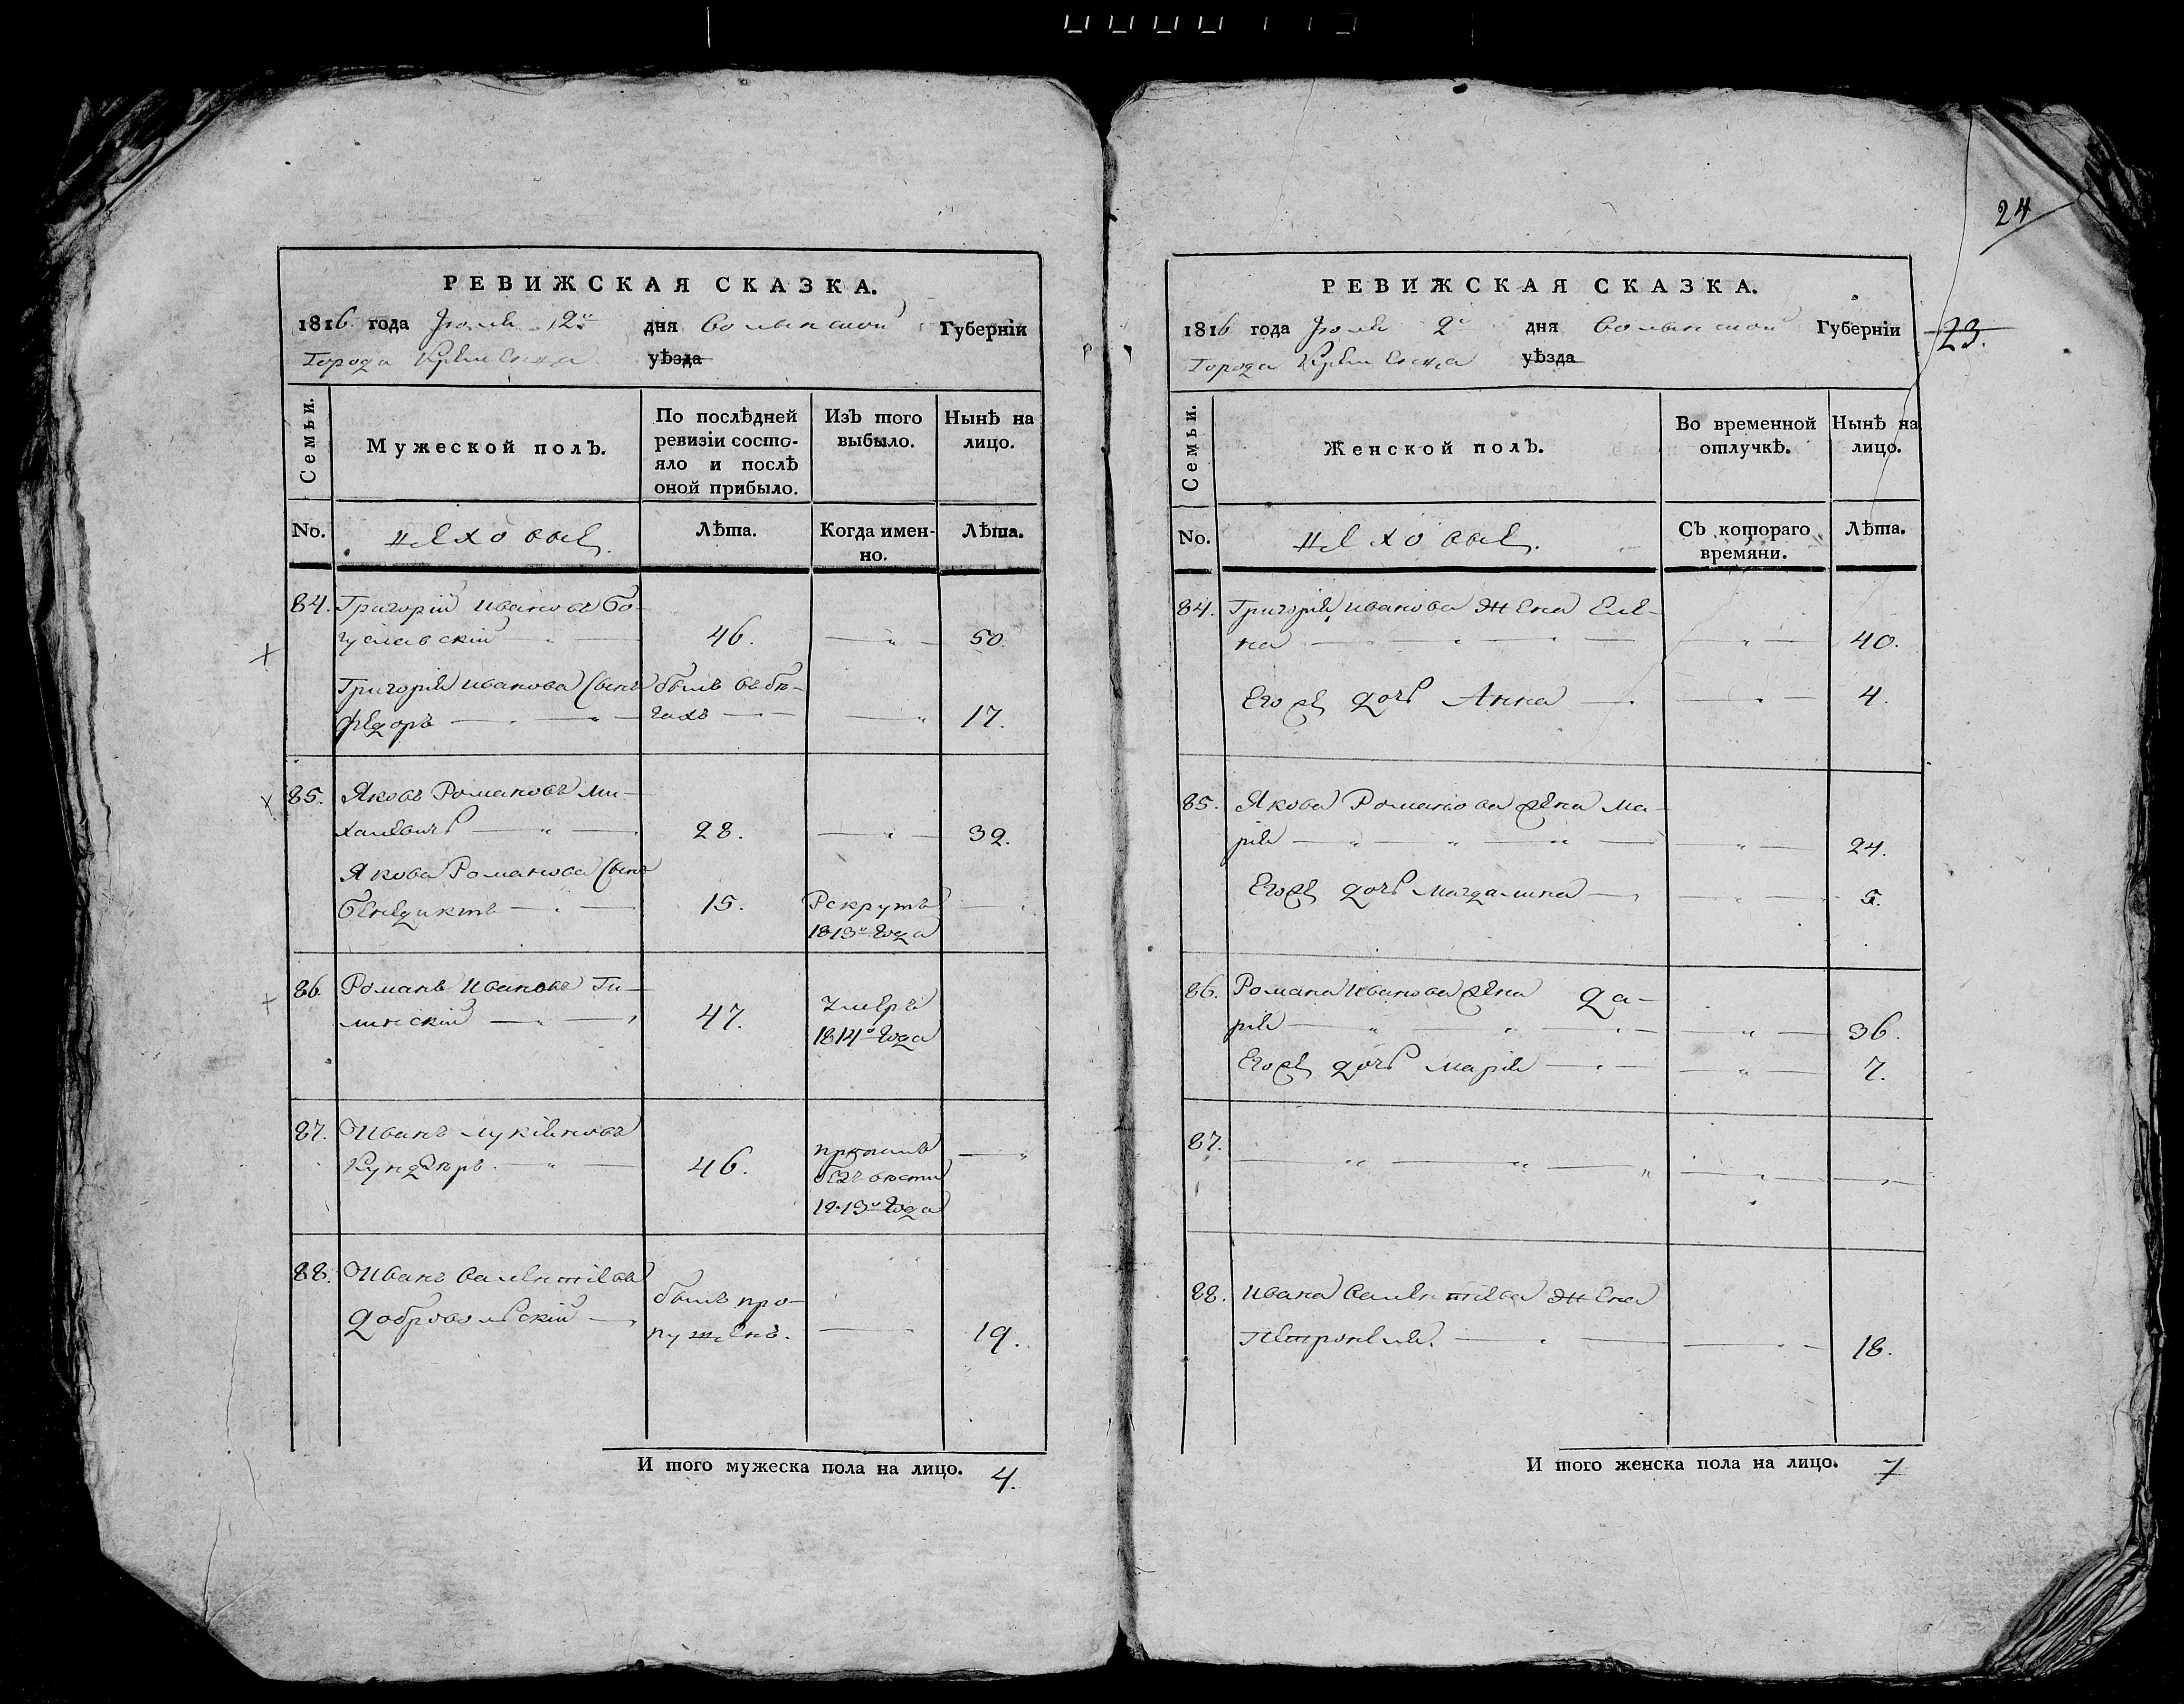 24
РЕВИЖСКАЯ СКАЗКА.
1816 года Июля 2го дня Волынской Губерніи
Города Кременца уѣзда
Семьи.
Мужеской полъ.
По послѣдней ревизіи состо-
яло и послѣ
оной прибыло.
Изъ того
выбыло.
Нынѣ на
лицо.
No.
цеховые
Лѣта.
Когда имен-
но.
Лѣта.
84. Григорій Ивановъ Бо-
гуславскій 46. 50.
Григорія Иванова сынъ былъ въ бѣ-
Федоръ гахъ 17.
85. Яковъ Романовъ Ми-
халевичь 28. 32.
Якова Романова сынъ
Бенедиктъ 15. Рекрутъ
1813го года
86. Романъ Ивановъ Ги-
линскій 47. Умеръ
1814го года
87. Иванъ Лукіяновъ
46. пропалъ
безъ вѣсти
1813го года
88. Иванъ Валентіевъ
Добровольскій былъ про-
пущенъ. 19.
И того мужеска пола на лицо. 4.
РЕВИЖСКАЯ СКАЗКА.
1816 года Июля 2го дня Волынской Губерніи
23.
Города Кременца уѣзда
Семьи.
Женской полъ.
Во временной
отлучкѣ.
Нынѣ на
лицо.
No.
цеховые.
Съ котораго
времяни.
Лѣта.
84. Григорія Иванова жена Еле-
на 40.
Егоже дочь Анна 4.
85. Якова Романова жена Ма-
рія 24.
Егоже дочь Магдалина 5.
86. Романа Иванова жена Да-
рія 36.
Егоже дочь Марія 7.
87.
88. Ивана Валентіева жена
Петронеля. 18.
И того женска пола на лицо. 7